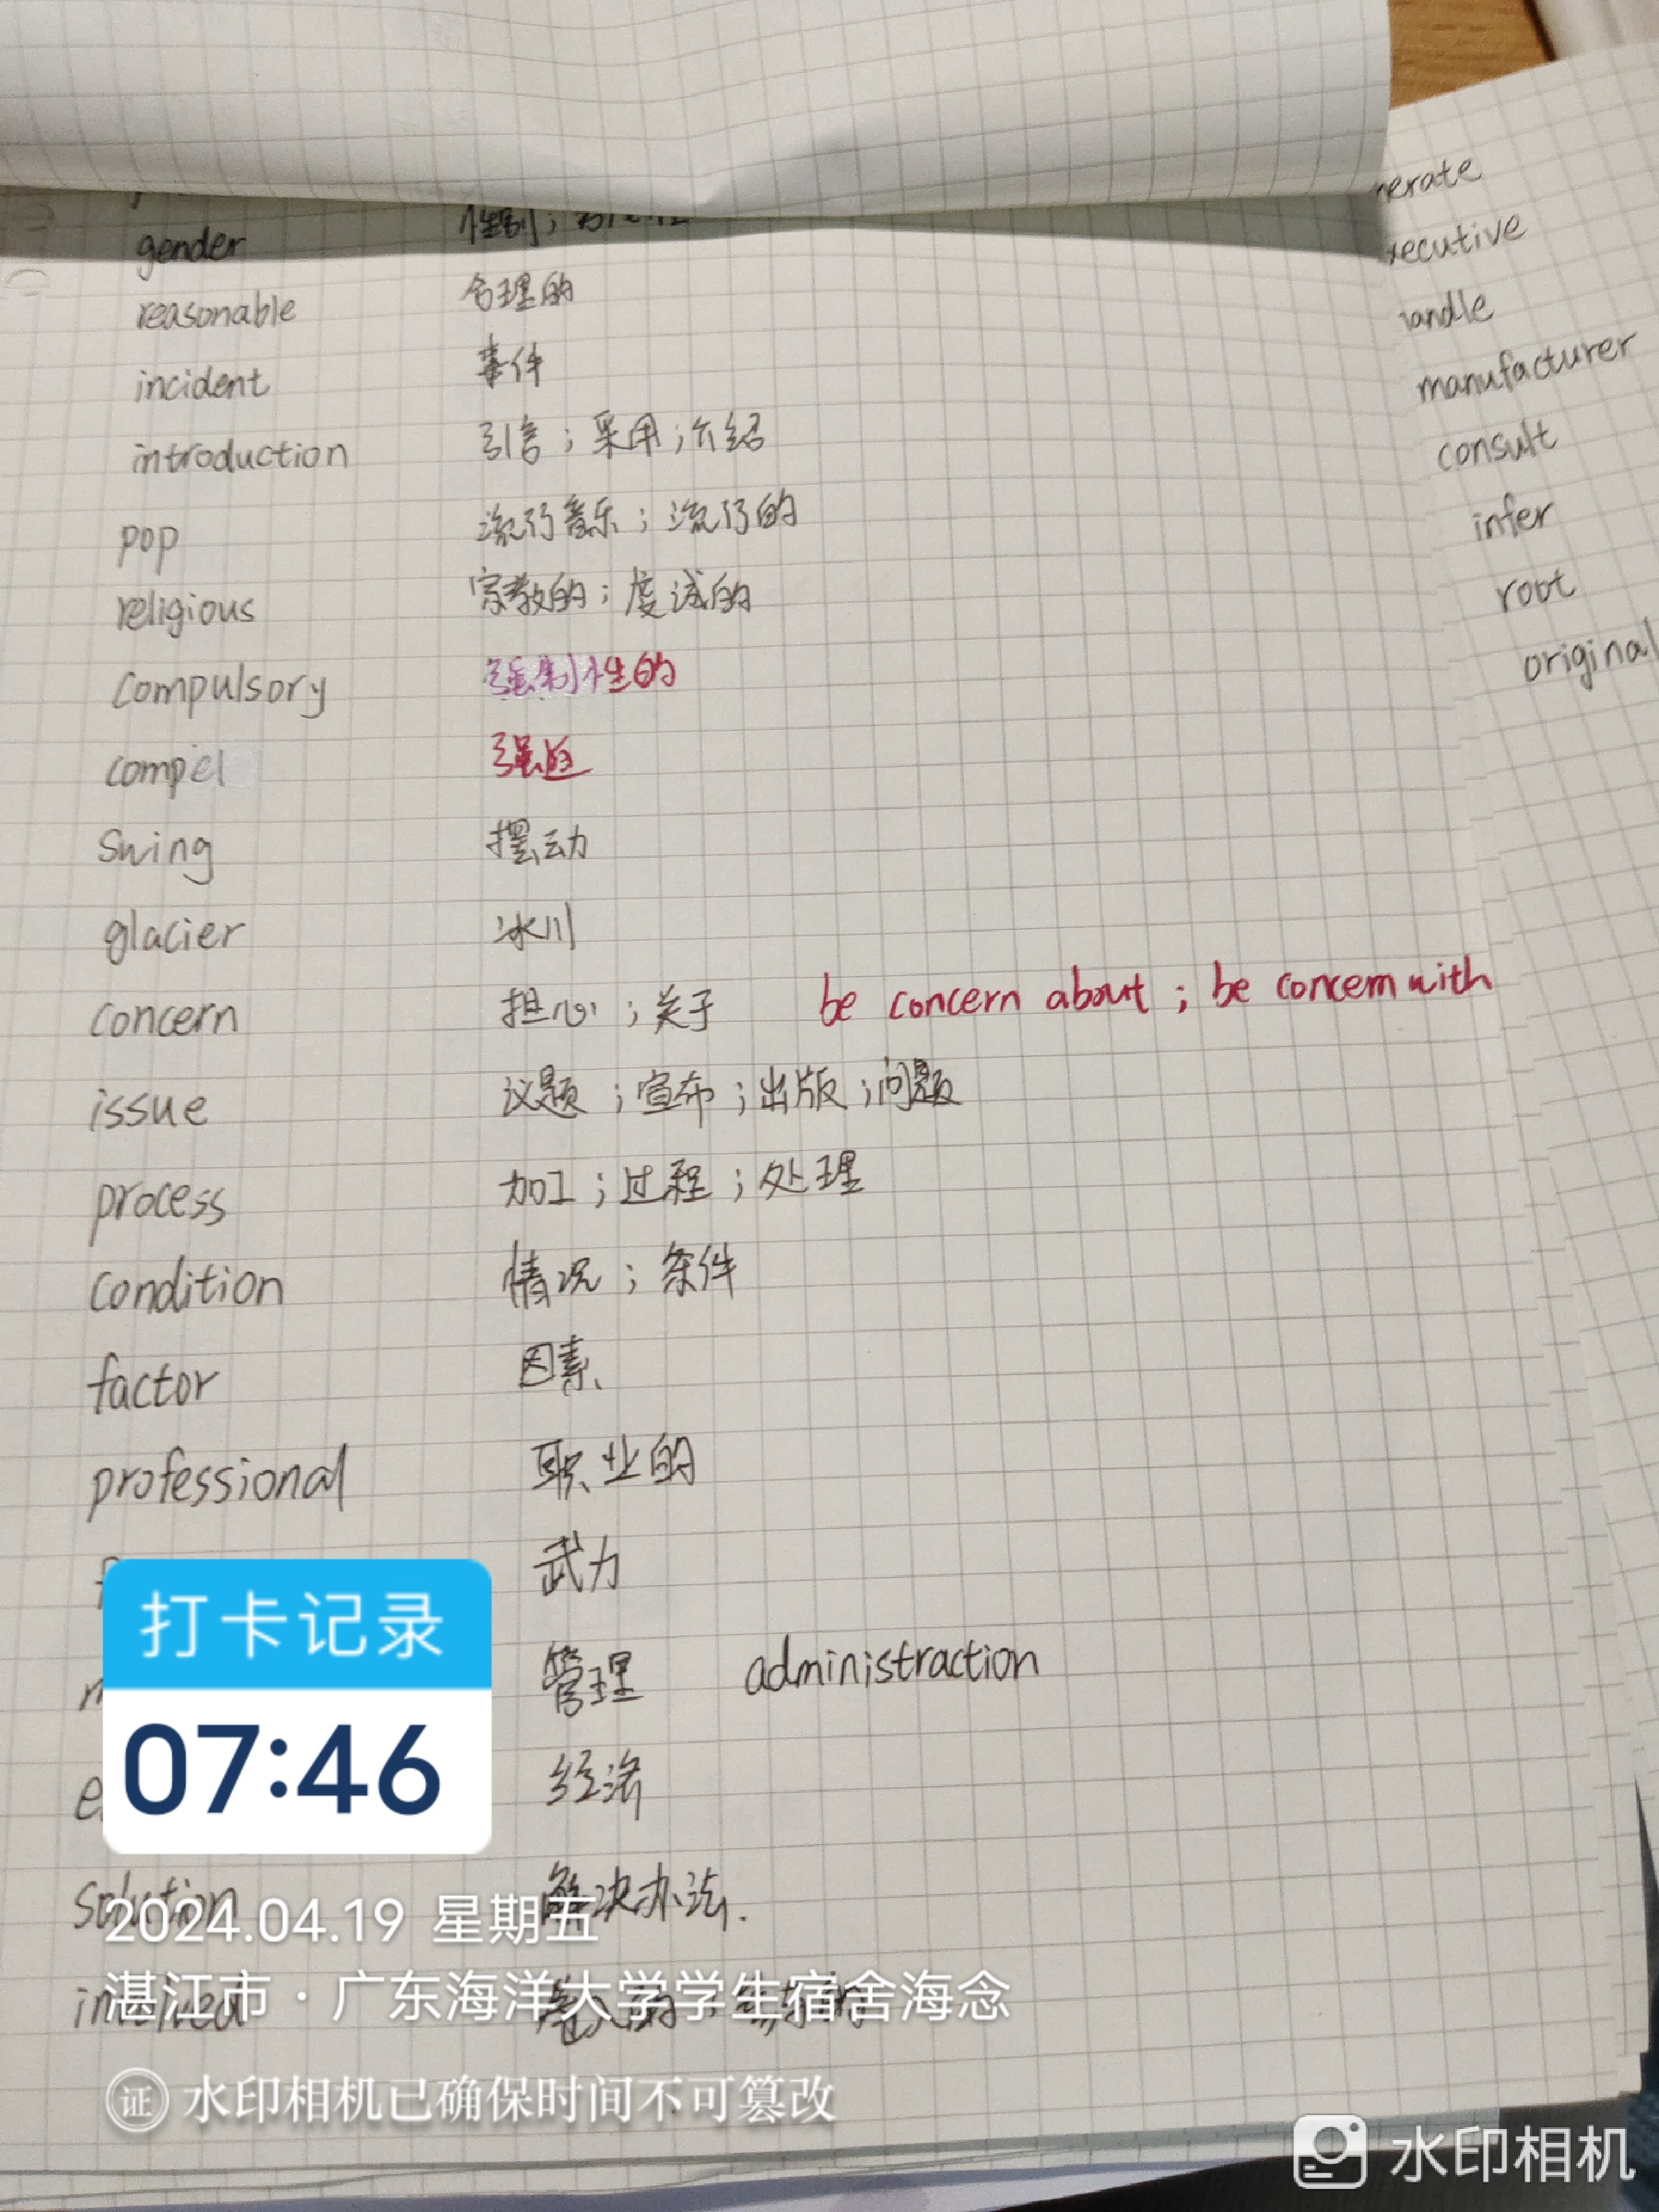 gender 性别;
reasonable 合理的
incident 事件
introduction 引言;采用;介绍
pop 流行音乐;流行的
religious 宗教的;虔诚的
compulsory 强制性的
compel 强迫
swing 摆动
glacier 冰川
concern 担心;关于 be concern about; be concern with
issue 议题;宣布;出版;问题
process 加工;过程;处理
condition 情况;条件
factor 因素
professional 职业的
武力
管理 administraction
经济
solution 解决办法.
involved
nerate
xecutive
andle
manufacturer
consult
infer
root
original
打卡记录
07:46
2024.04.19 星期五
湛江市·广东海洋大学学生宿舍海念
证 水印相机已确保时间不可篡改
水印相机